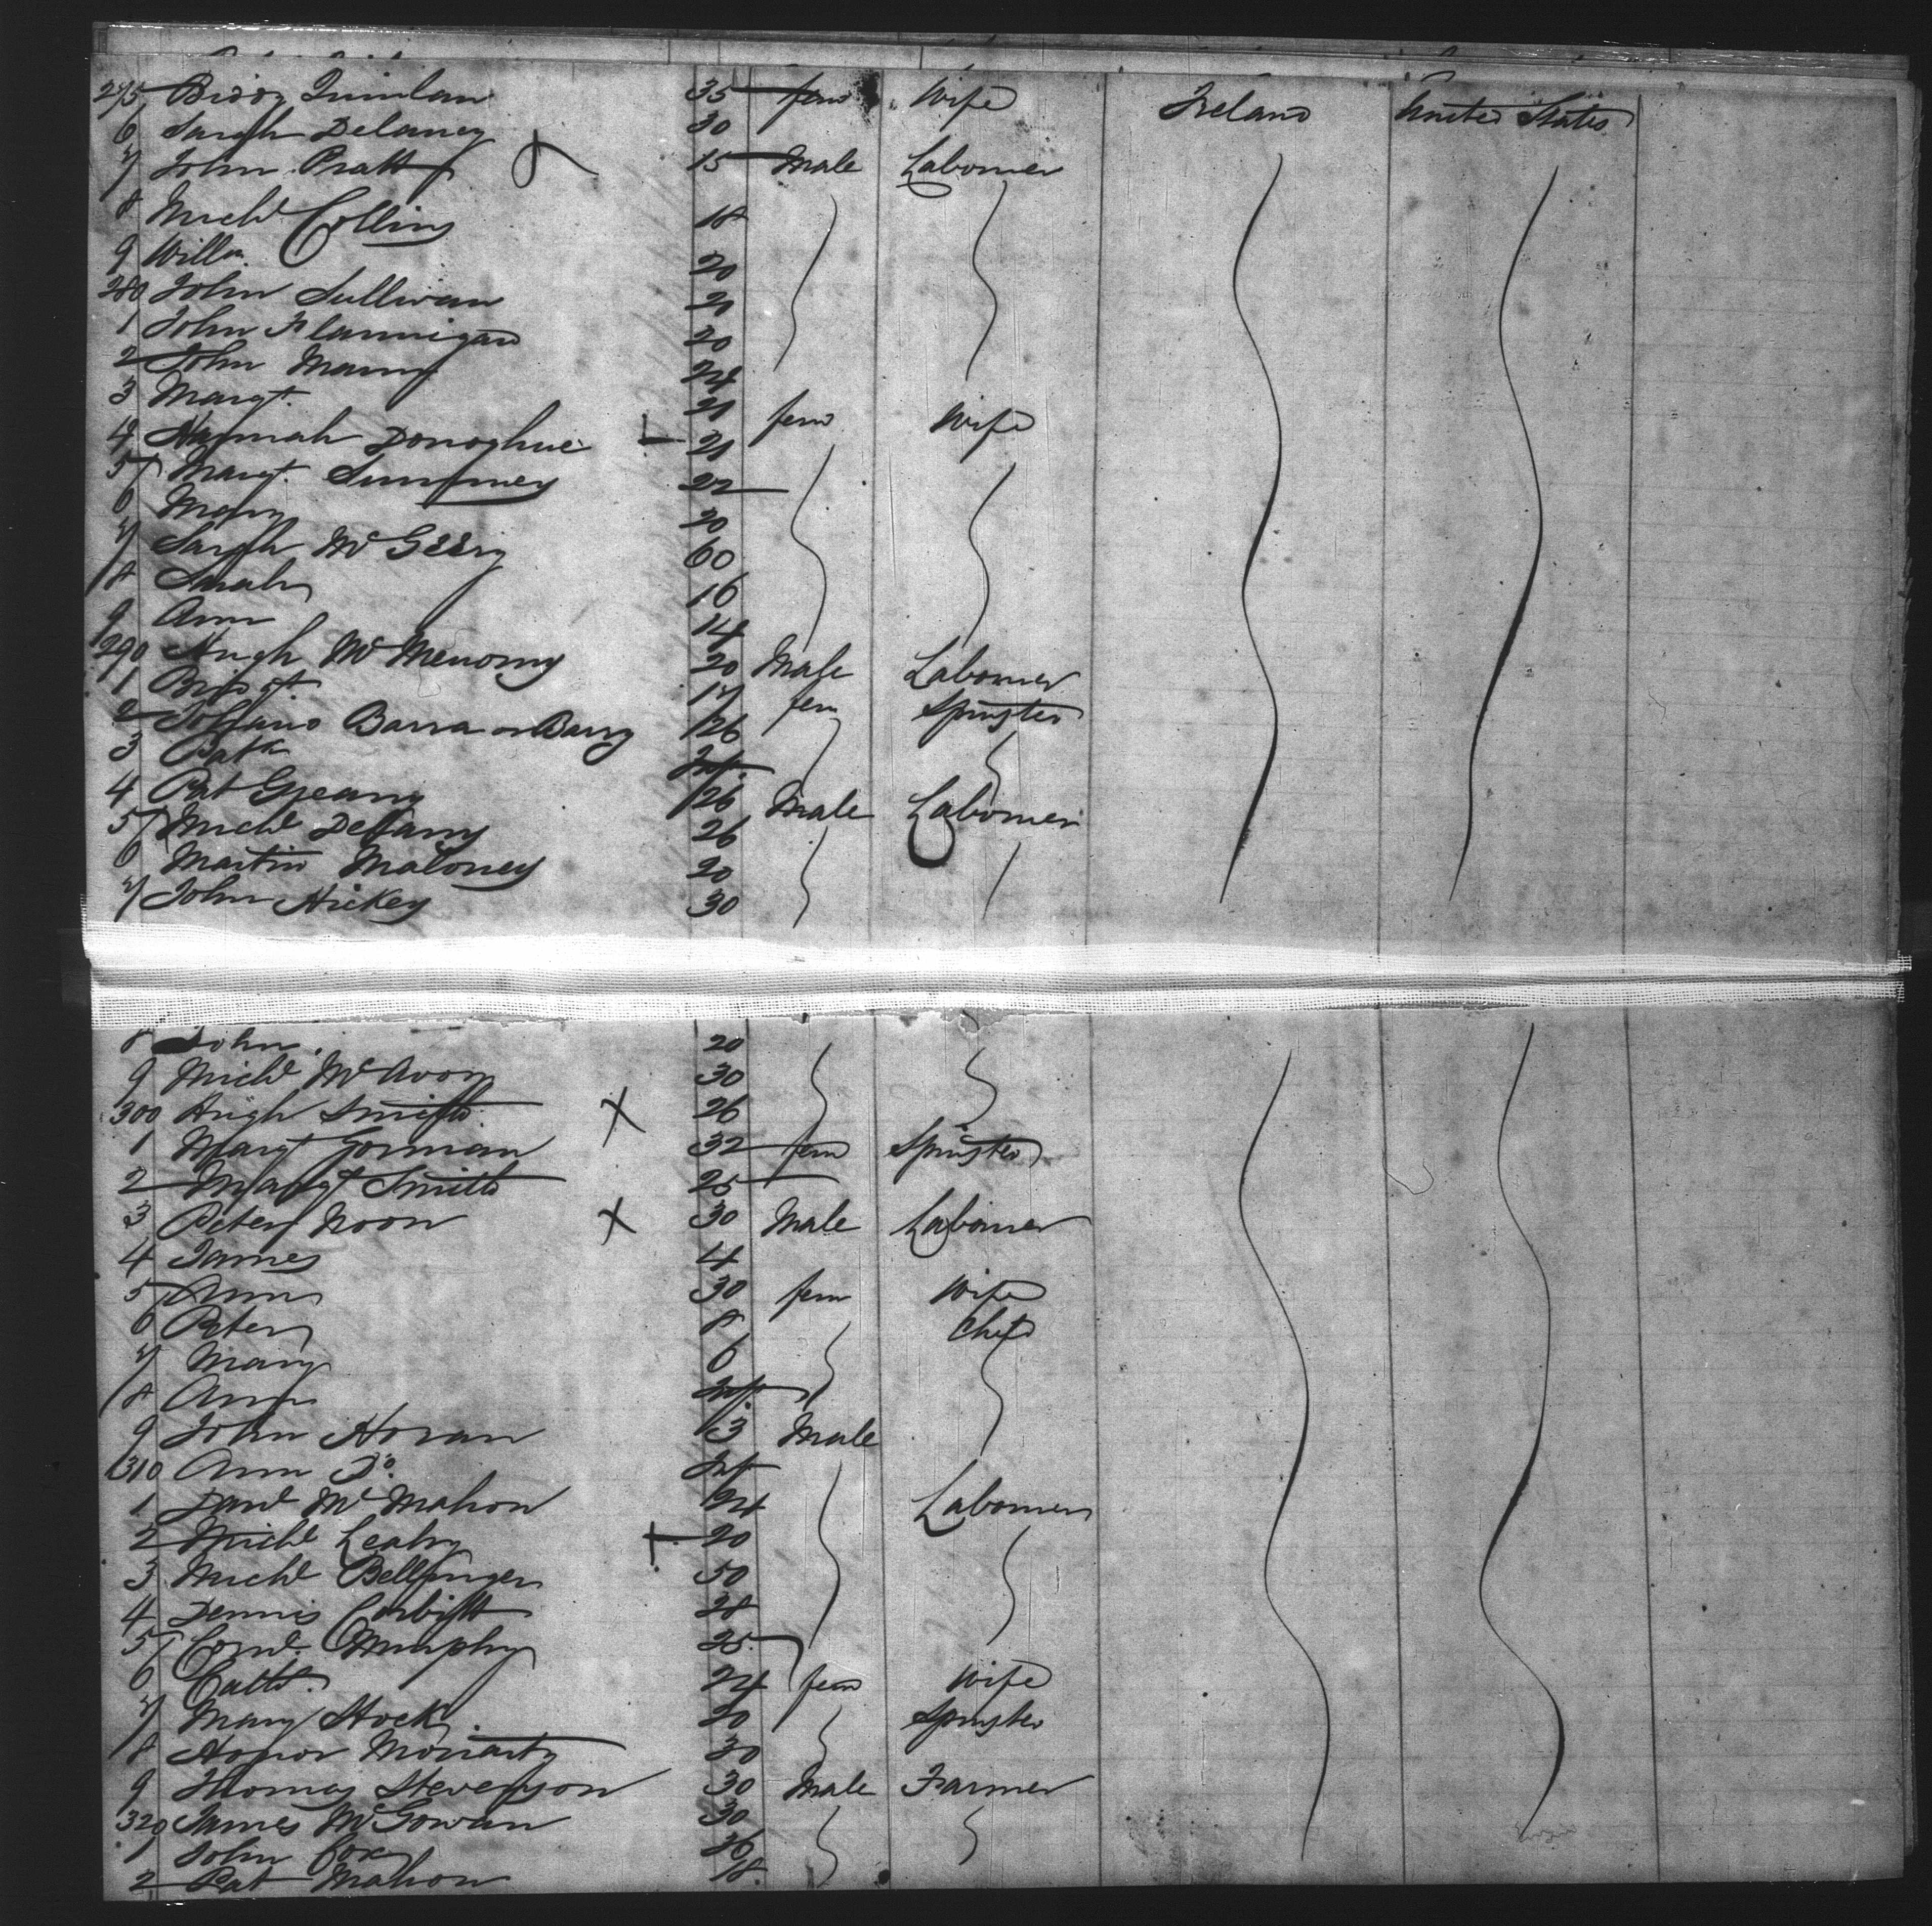 275 Biddy Quinlan 35 fem Wife Ireland United States
6 Sarah Delaney 30
7 John Pratt 15 Male Labourer
8 Michl Collins 18
9 Willm. 20
280 John Sullivan 21
1 John Flannigan 20
2 John Many 24
3 Margt. 21 fem Wife
4 Hannah Donoghue 21
5 Margt. 22
6 Mary 20
7 Sarah McGeery 60
8 Sarah 16
9 Ann 14
290 Hugh McMenomy 20 Male Labourer
1 Bridgt. 17 fem Spinster
2 Barra or Barry 26
3 Patk Inft.
4 Pat Geany 26 Male Labourer
5 Michl Dellany 26
6 Martin Maloney 20
7 John Hickey 30
8 John 20
9 Michl McAvoy 30
300 Hugh Smith X 26
1 Margt Gorman 32 fem Spinster
2 Margt Smith 25
3 Peter Noon X 30 Male Labourer
4 James 4
5 Ann 30 fem Wife
6 Peter 8 Child
7 Mary 6
8 Ann Inft.
9 John Horan 13 Male
310 Ann Do. Inft
1 Danl McMahon 24 Labourer
2 Michl Leahy 20
3 Michl Bellinger 50
4 Dennis Corbitt 28
5 Cornl. Murphy 25
6 Cathe. 24 fem Wife
7 Mary Stock 20 Spinster
8 Honor Moriarty 30
9 Thomas Stevenson 30 Male Farmer
320 James McGowan 30
1 John Cox
2 Pat Mahon 18.